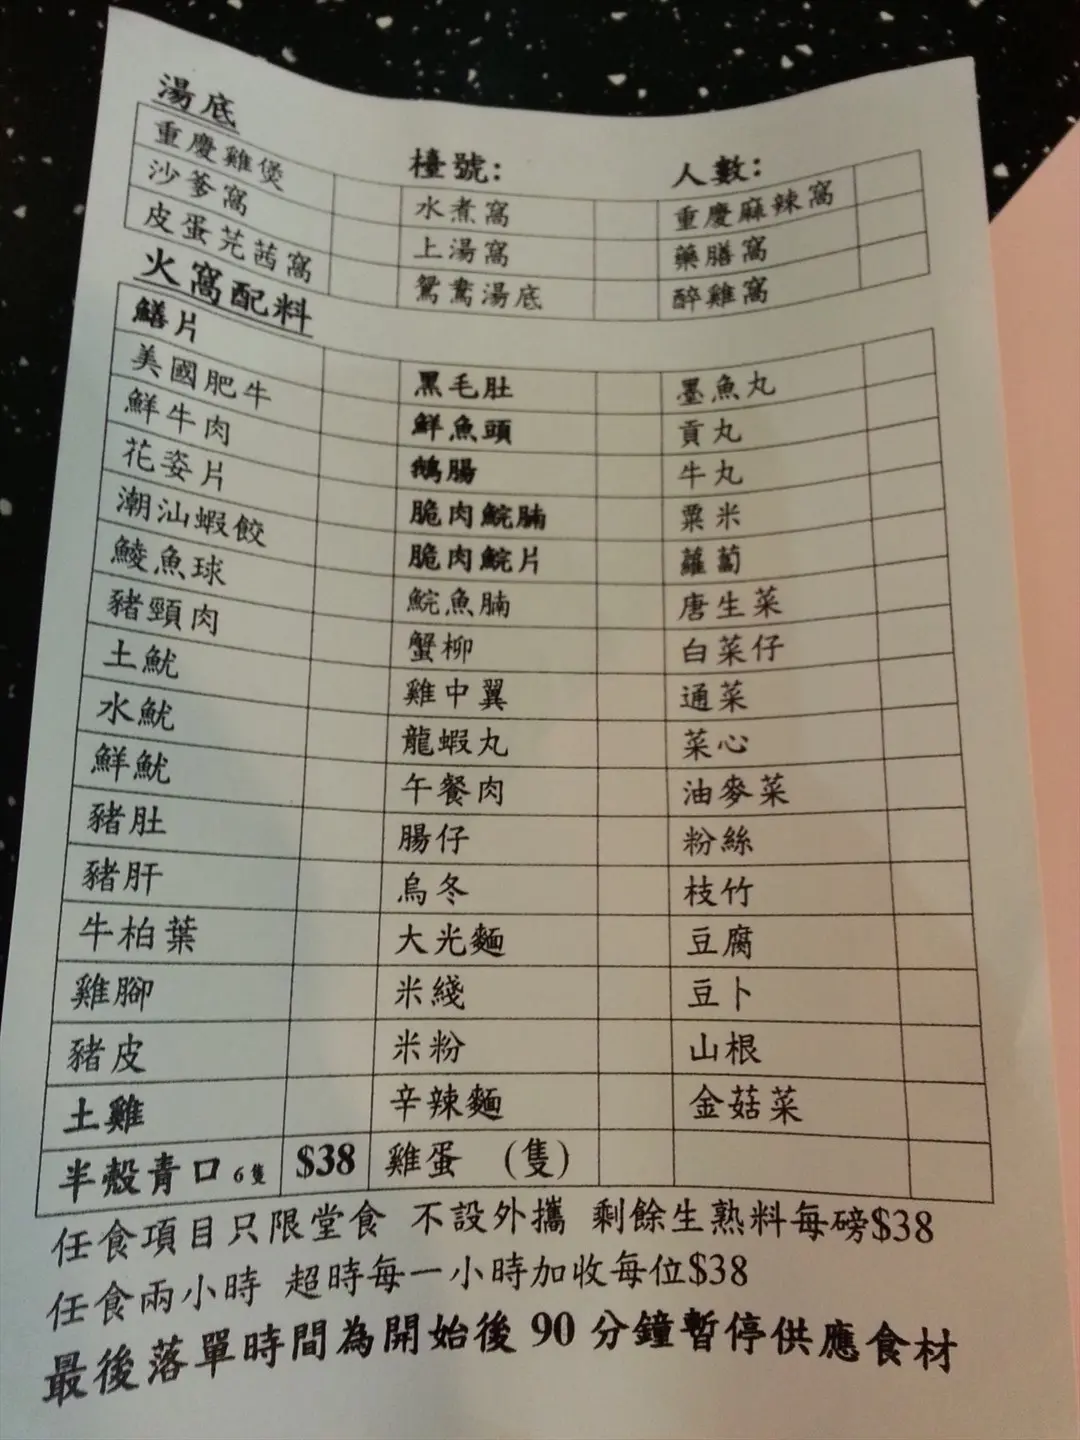 湯底
檯號: 人數:
重慶雞煲 水煮窩 重慶麻辣窩
沙爹窩 上湯窩 藥膳窩
皮蛋芫茜窩 鴛鴦湯底 醉雞窩
火窩配料
鱔片 黑毛肚 墨魚丸
美國肥牛 鮮魚頭 貢丸
鮮牛肉 鵝腸 牛丸
花姿片 脆肉鯇腩 粟米
潮汕蝦餃 脆肉鯇片 蘿蔔
鯪魚球 鯇魚腩 唐生菜
豬頸肉 蟹柳 白菜仔
土魷 雞中翼 通菜
水魷 龍蝦丸 菜心
鮮魷 午餐肉 油麥菜
豬肚 腸仔 粉絲
豬肝 烏冬 枝竹
牛柏葉 大光麵 豆腐
雞腳 米綫 豆卜
豬皮 米粉 山根
土雞 辛辣麵 金菇菜
半殼青口 6隻 $38 雞蛋 (隻)
任食項目只限堂食 不設外攜 剩餘生熟料每磅$38
任食兩小時 超時每一小時加收每位$38
最後落單時間為開始後 90 分鐘暫停供應食材